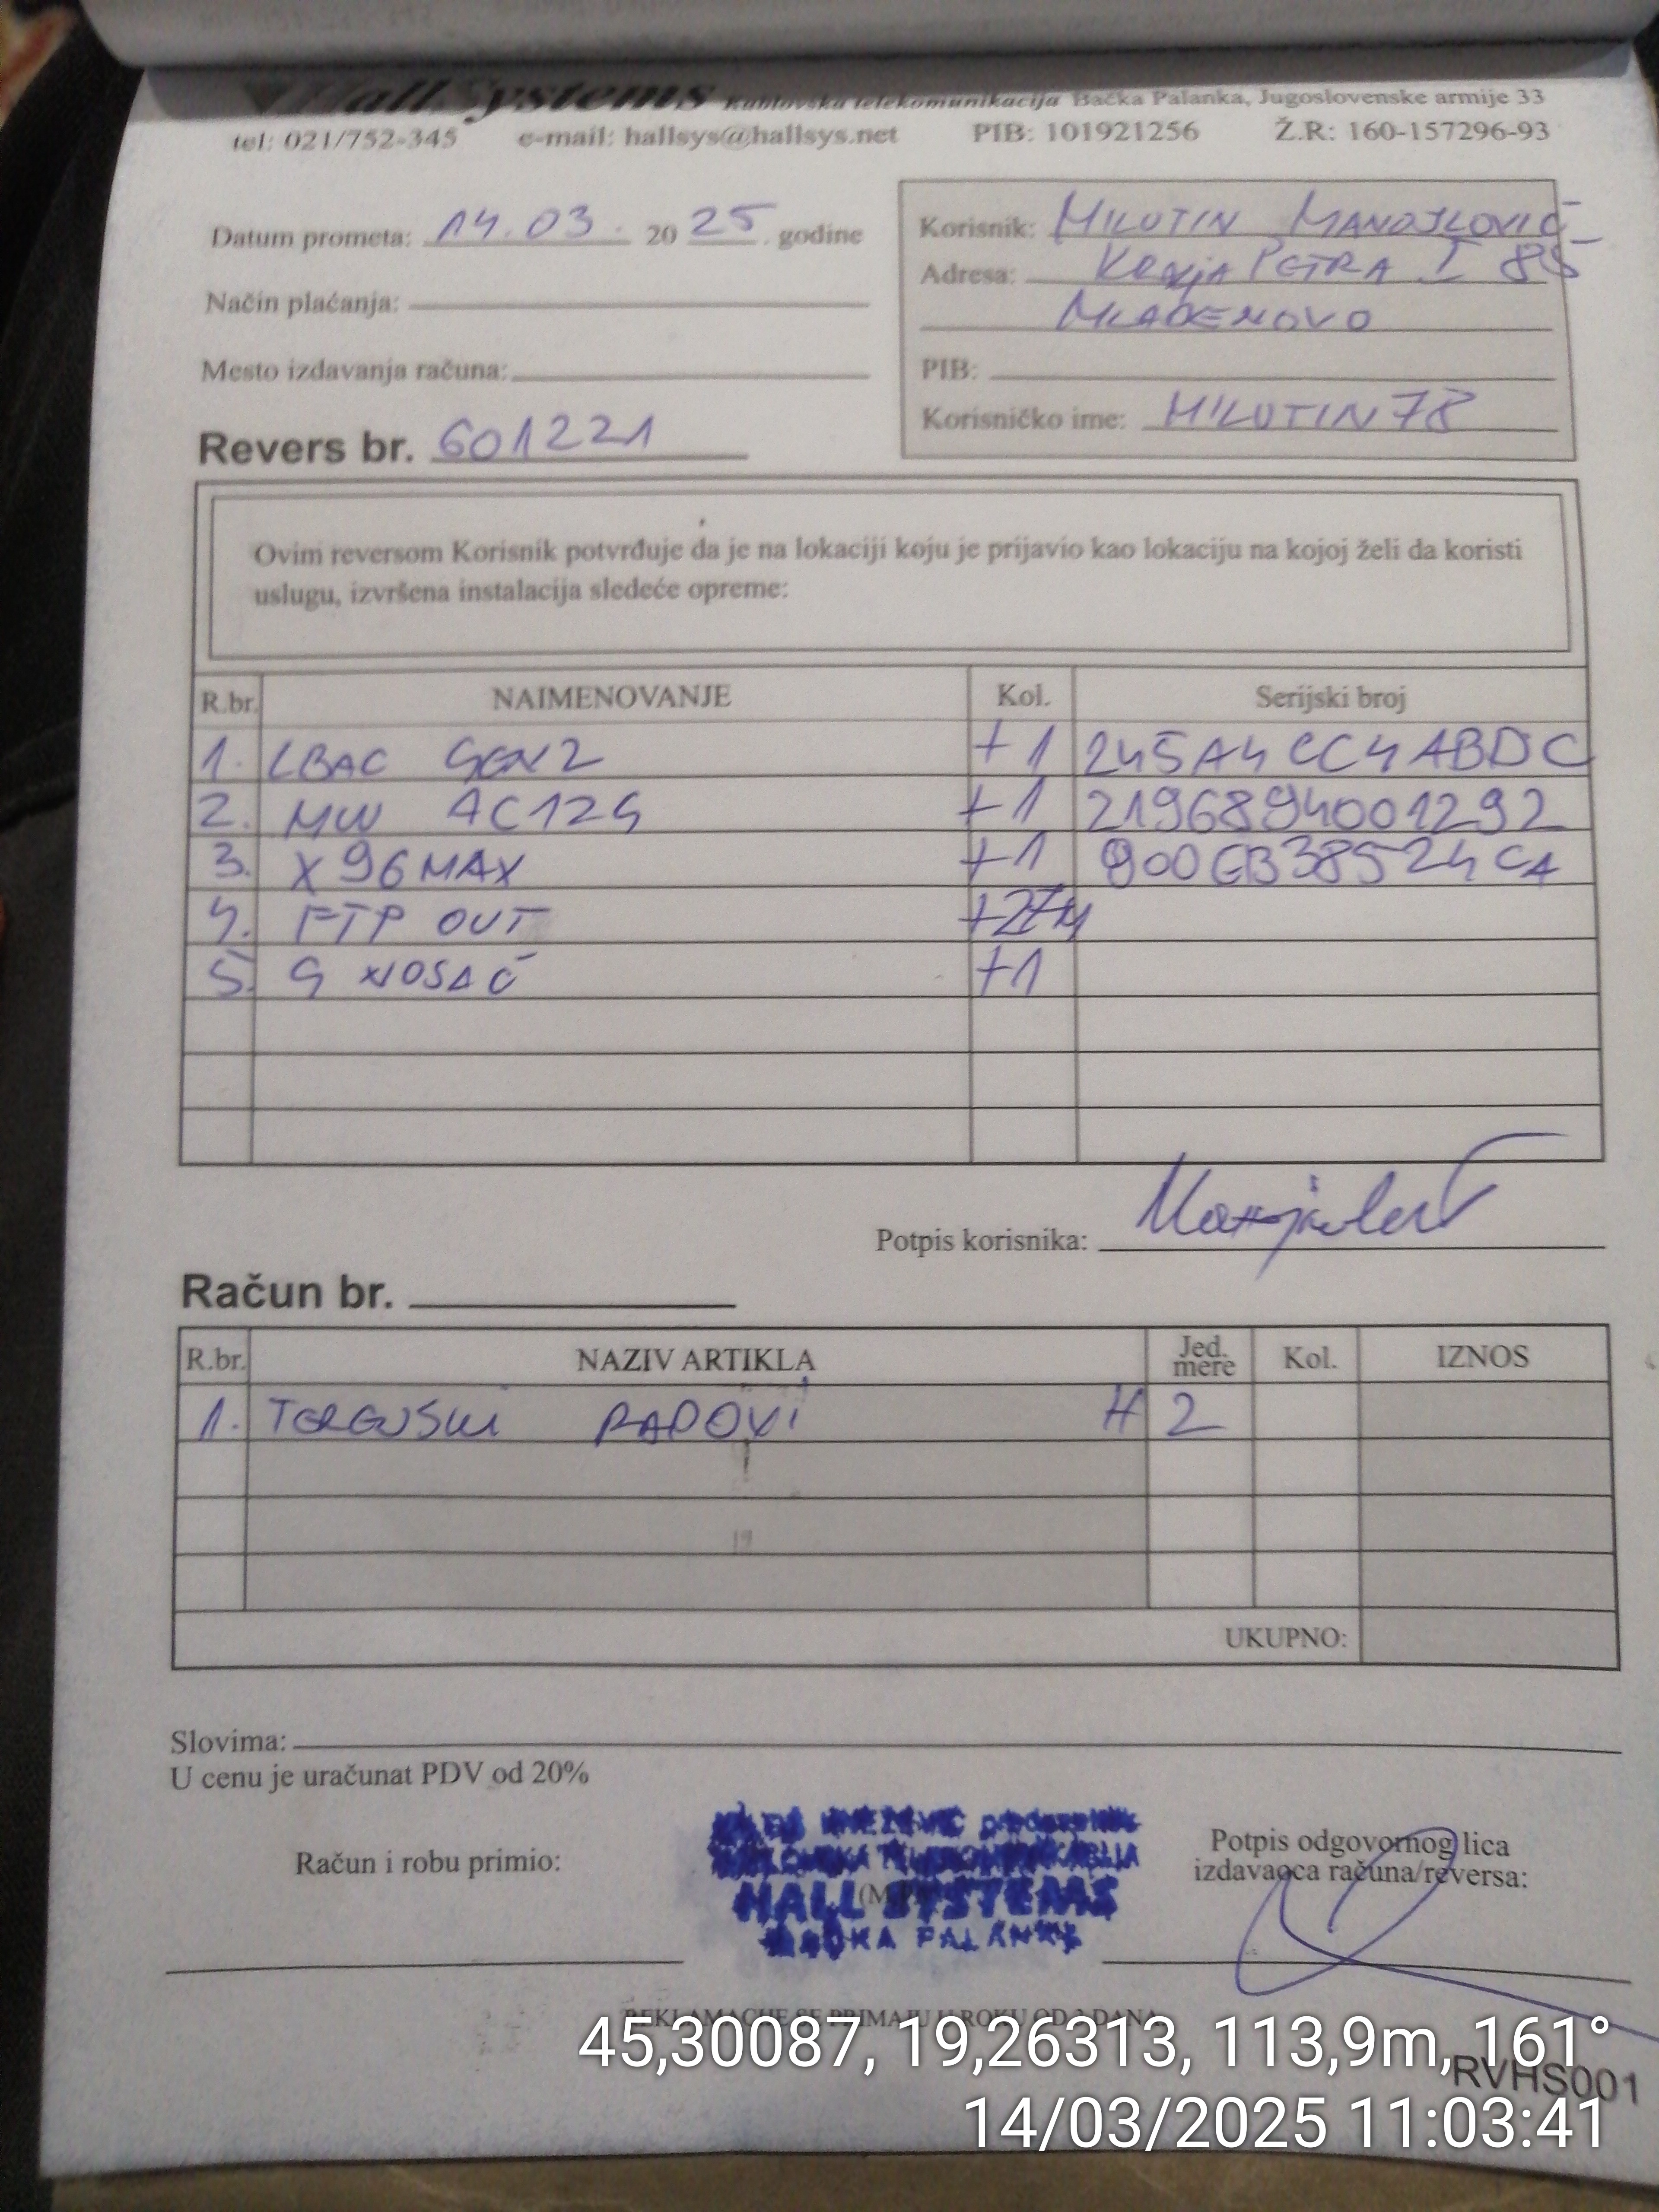 HallSystems Kablovska telekomunikacija Bačka Palanka, Jugoslovenske armije 33
tel: 021/752-345 e-mail: hallsys@hallsys.net PIB: 101921256 Ž.R: 160-157296-93
Datum prometa: 14.03. 2025 godine
Način plaćanja:
Mesto izdavanja računa:
Revers br. 601221
Korisnik: MILUTIN MANOJLOVIĆ
Adresa: KRALJA PETRA I 85
MLADENOVO
PIB:
Korisničko ime: MILUTIN78
Ovim reversom Korisnik potvrđuje da je na lokaciji koju je prijavio kao lokaciju na kojoj želi da koristi
uslugu, izvršena instalacija sledeće opreme:
R.br. NAIMENOVANJE Kol. Serijski broj
1. LBAC GEN2 +1 245A4CC4ABDC
2. MW AC12G +1 2196894001292
3. X96MAX +1 900EB38524CA
4. FTP OUT +27M
5. G NOSAČ +1
Potpis korisnika:
Račun br.
R.br. NAZIV ARTIKLA Jed. mere Kol. IZNOS
1. TERENSKI RADOVI H 2
UKUPNO:
Slovima:
U cenu je uračunat PDV od 20%
Račun i robu primio:
HALL SYSTEMS
BAČKA PALANKA
Potpis odgovornog lica
izdavaoca računa/reversa:
REKLAMACIJE SE PRIMAJU U ROKU OD 3 DANA
45,30087, 19,26313, 113,9m, 161°
RVHS001
14/03/2025 11:03:41